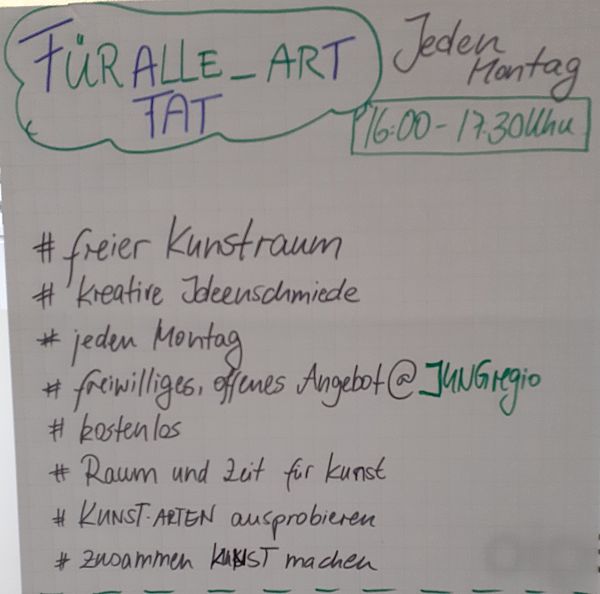 FÜR ALLE_ART
TAT
Jeden
Montag
16:00-17.30Uhr
# freier Kunstraum
# kreative Ideenschmiede
# jeden Montag
# freiwilliges, offenes Angebot @ JUNGregio
# kostenlos
# Raum und Zeit für Kunst
# KUNST-ARTEN ausprobieren
# zusammen KUNST machen